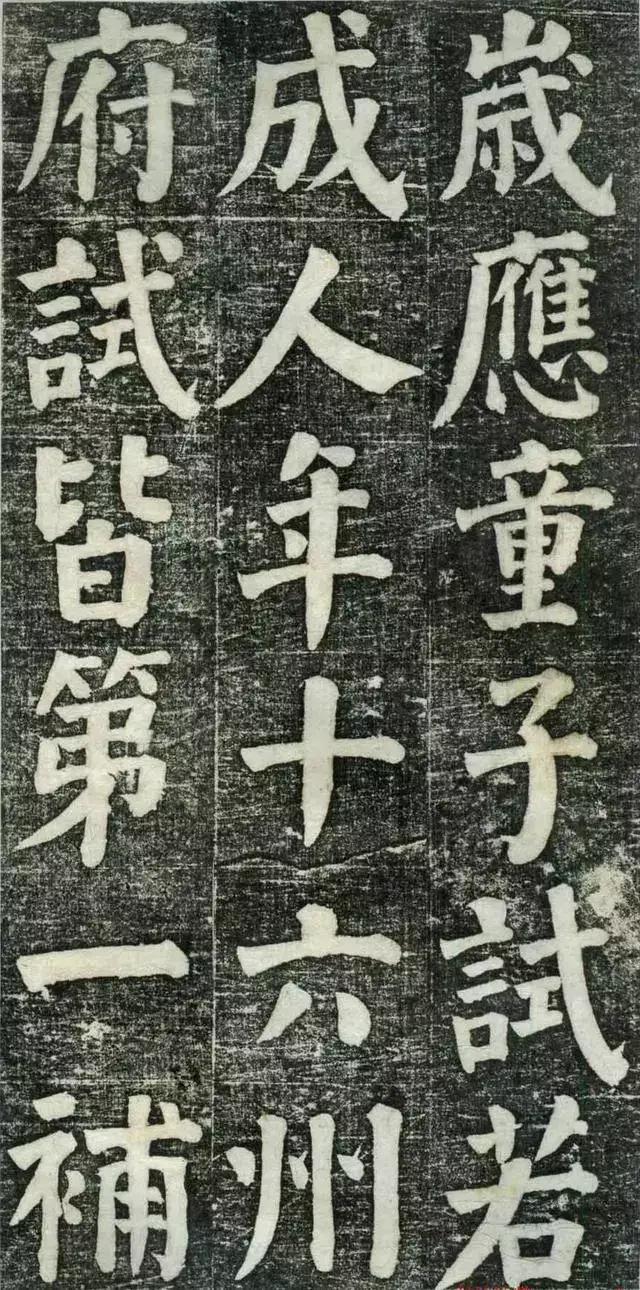 歲應童子試若
成人年十六州
府試皆第一補